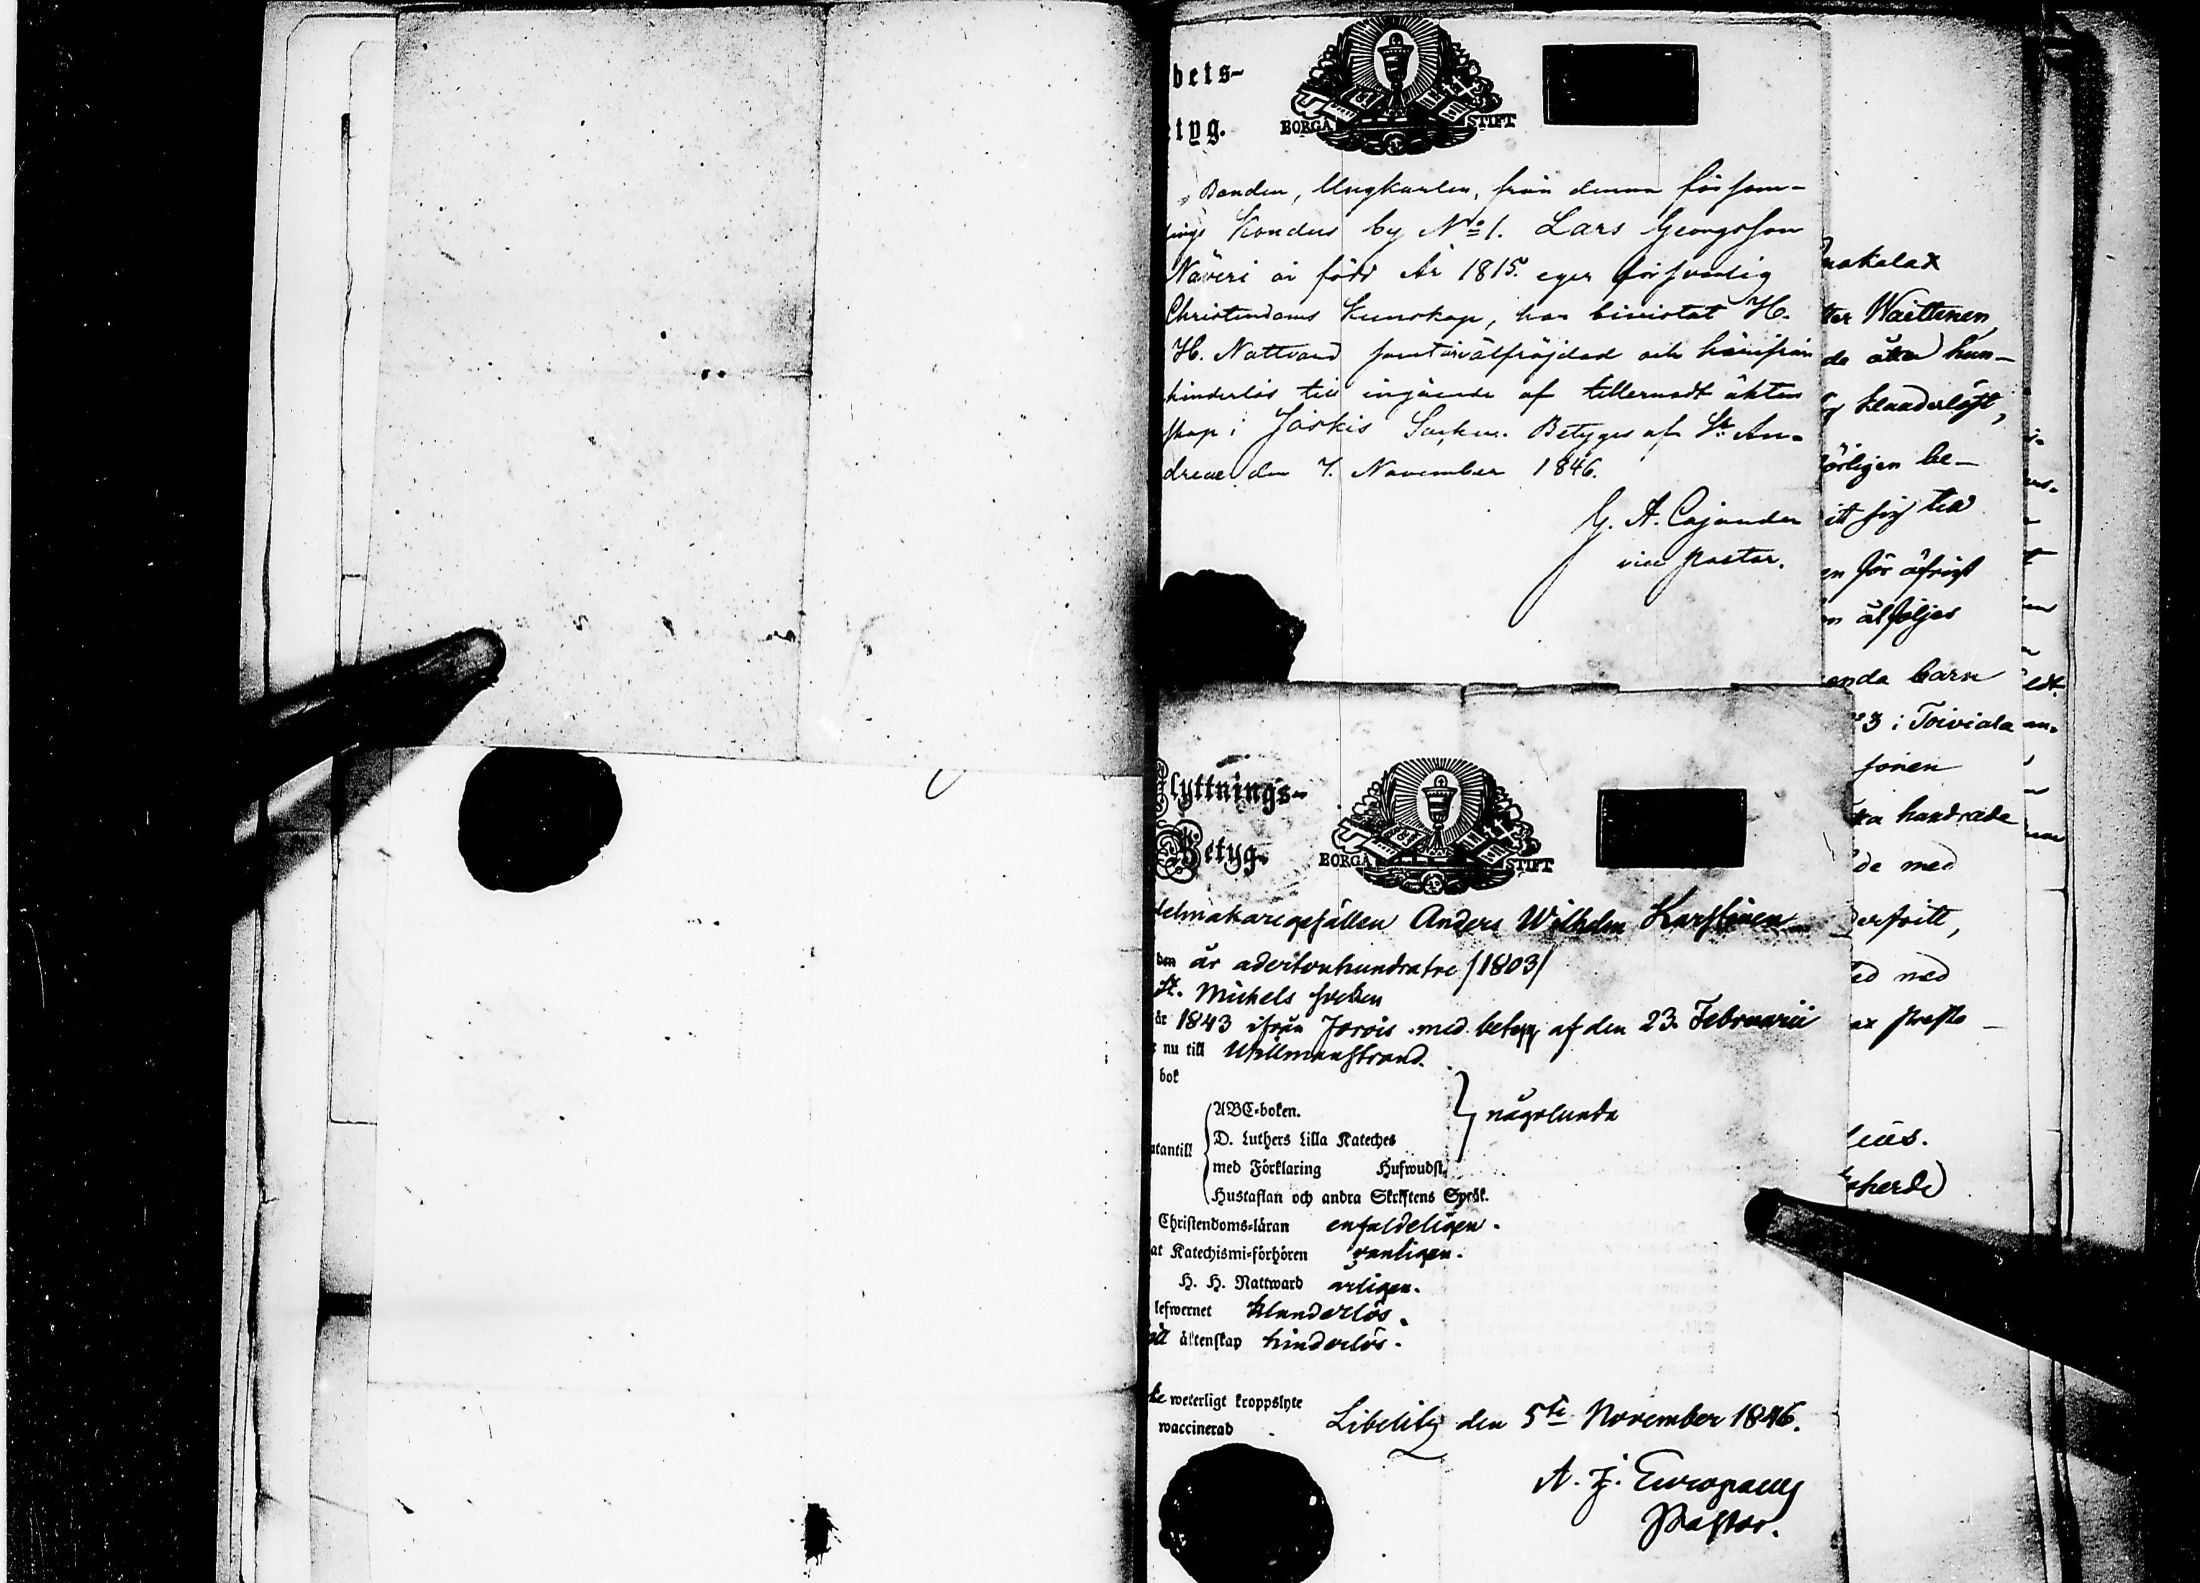 bets-
etyg.
BORGÅ STIFT
Bonden, Ungkarlen, från denna försam-
lings Kondus by No 1. Lars Georgsson
Näveri är född År 1815. eger försvarlig
Christendoms Kunskap, har bivistat H.
H. Nattvard samt är välfräjdad och härifrån
hinderlös till ingående af tillernadt äkten
skap i Jäskis Socken. Betygas af St. An-
dreae den 7. November 1846.
G. A. Cajander
vice Pastor.
nakalax
ter Waittinen,
de åker kun-
klanderlöst,
örligen be-
itt sig till
en för öfrigt
n åtföljes
anda barn
3 i Toiviala
sonen
ra handrade
de med
derfritt,
ed med
ax
lius.
oherde
Flyttnings-
Betyg.
BORGÅ STIFT
delmakaregesällen Anders Wilhelm Karstinen
den år adertonhundratre /1803/
St. Michels socken
år 1843 ifrån Jorois med betyg af den 23. Februarii
nu till Willmanstrand.
bok
ABC-boken.
någolunda
D. Luthers Lilla Kateches
utantill
med Förklaring Hufwudst.
Hustaflan och andra Skriftens Språk.
Christendoms-läran enfaldeligen.
at Katechismi-förhören vanligen.
H. H. Nattward årligen.
lefwernet klanderlös.
till äktenskap hinderlös.
ke weterligt kroppslyte
waccinerad
Libelitz den 5te November 1846.
A. J. Europaeus
Pastor.